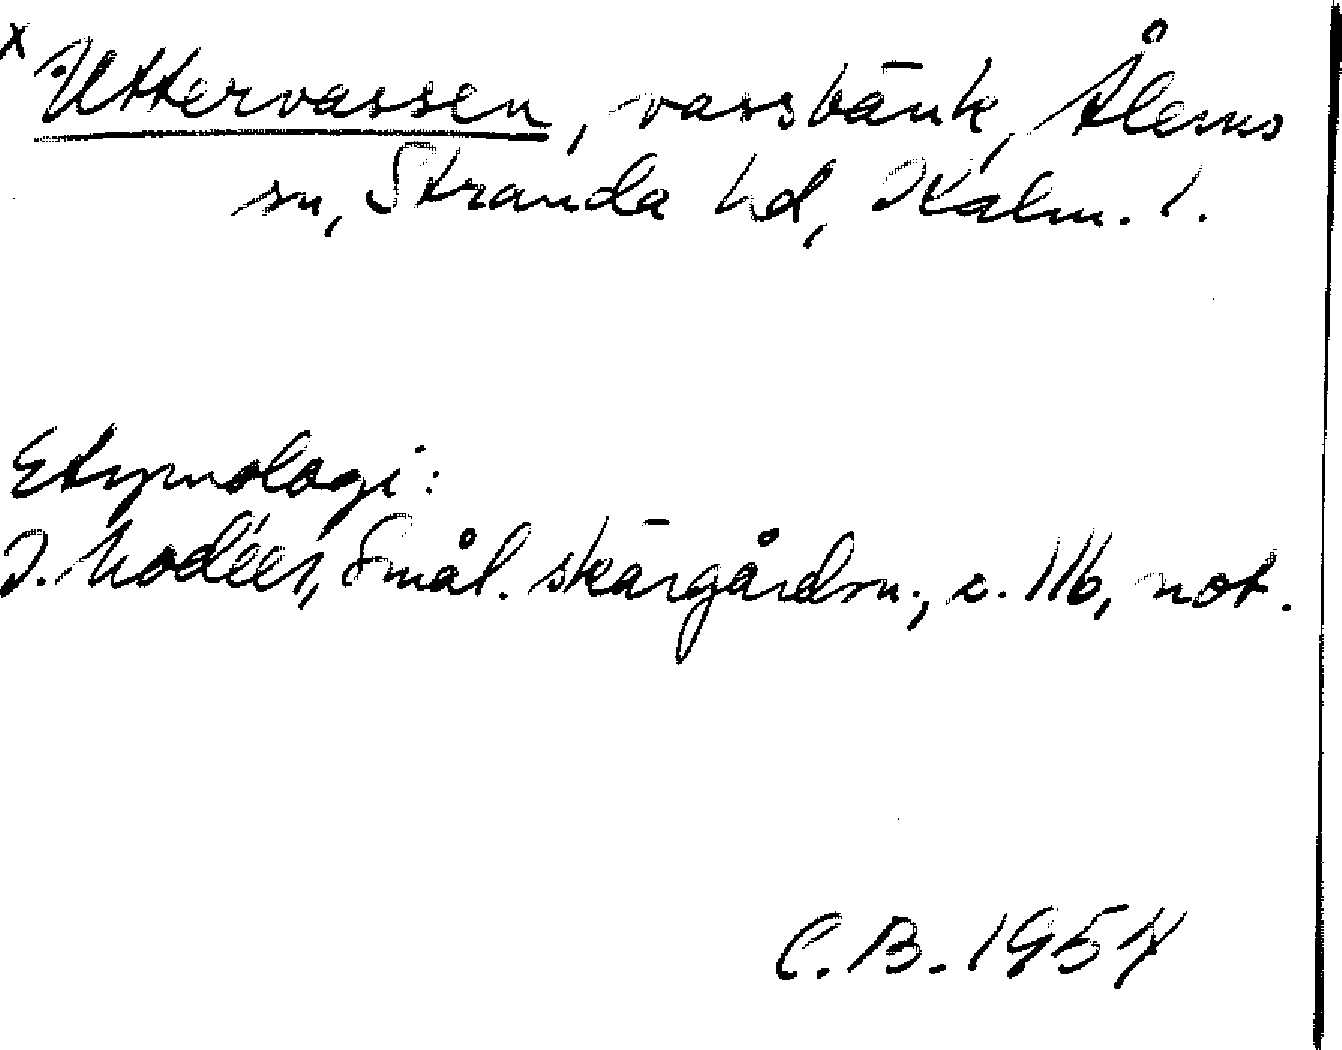 x Uttervassen, vassbänk, Ålems
sn, Stranda hd, Kalm. l.
Etymologi:
I. Modéer, Smål. skärgårdsn., s. 116, not.
C.B. 1957